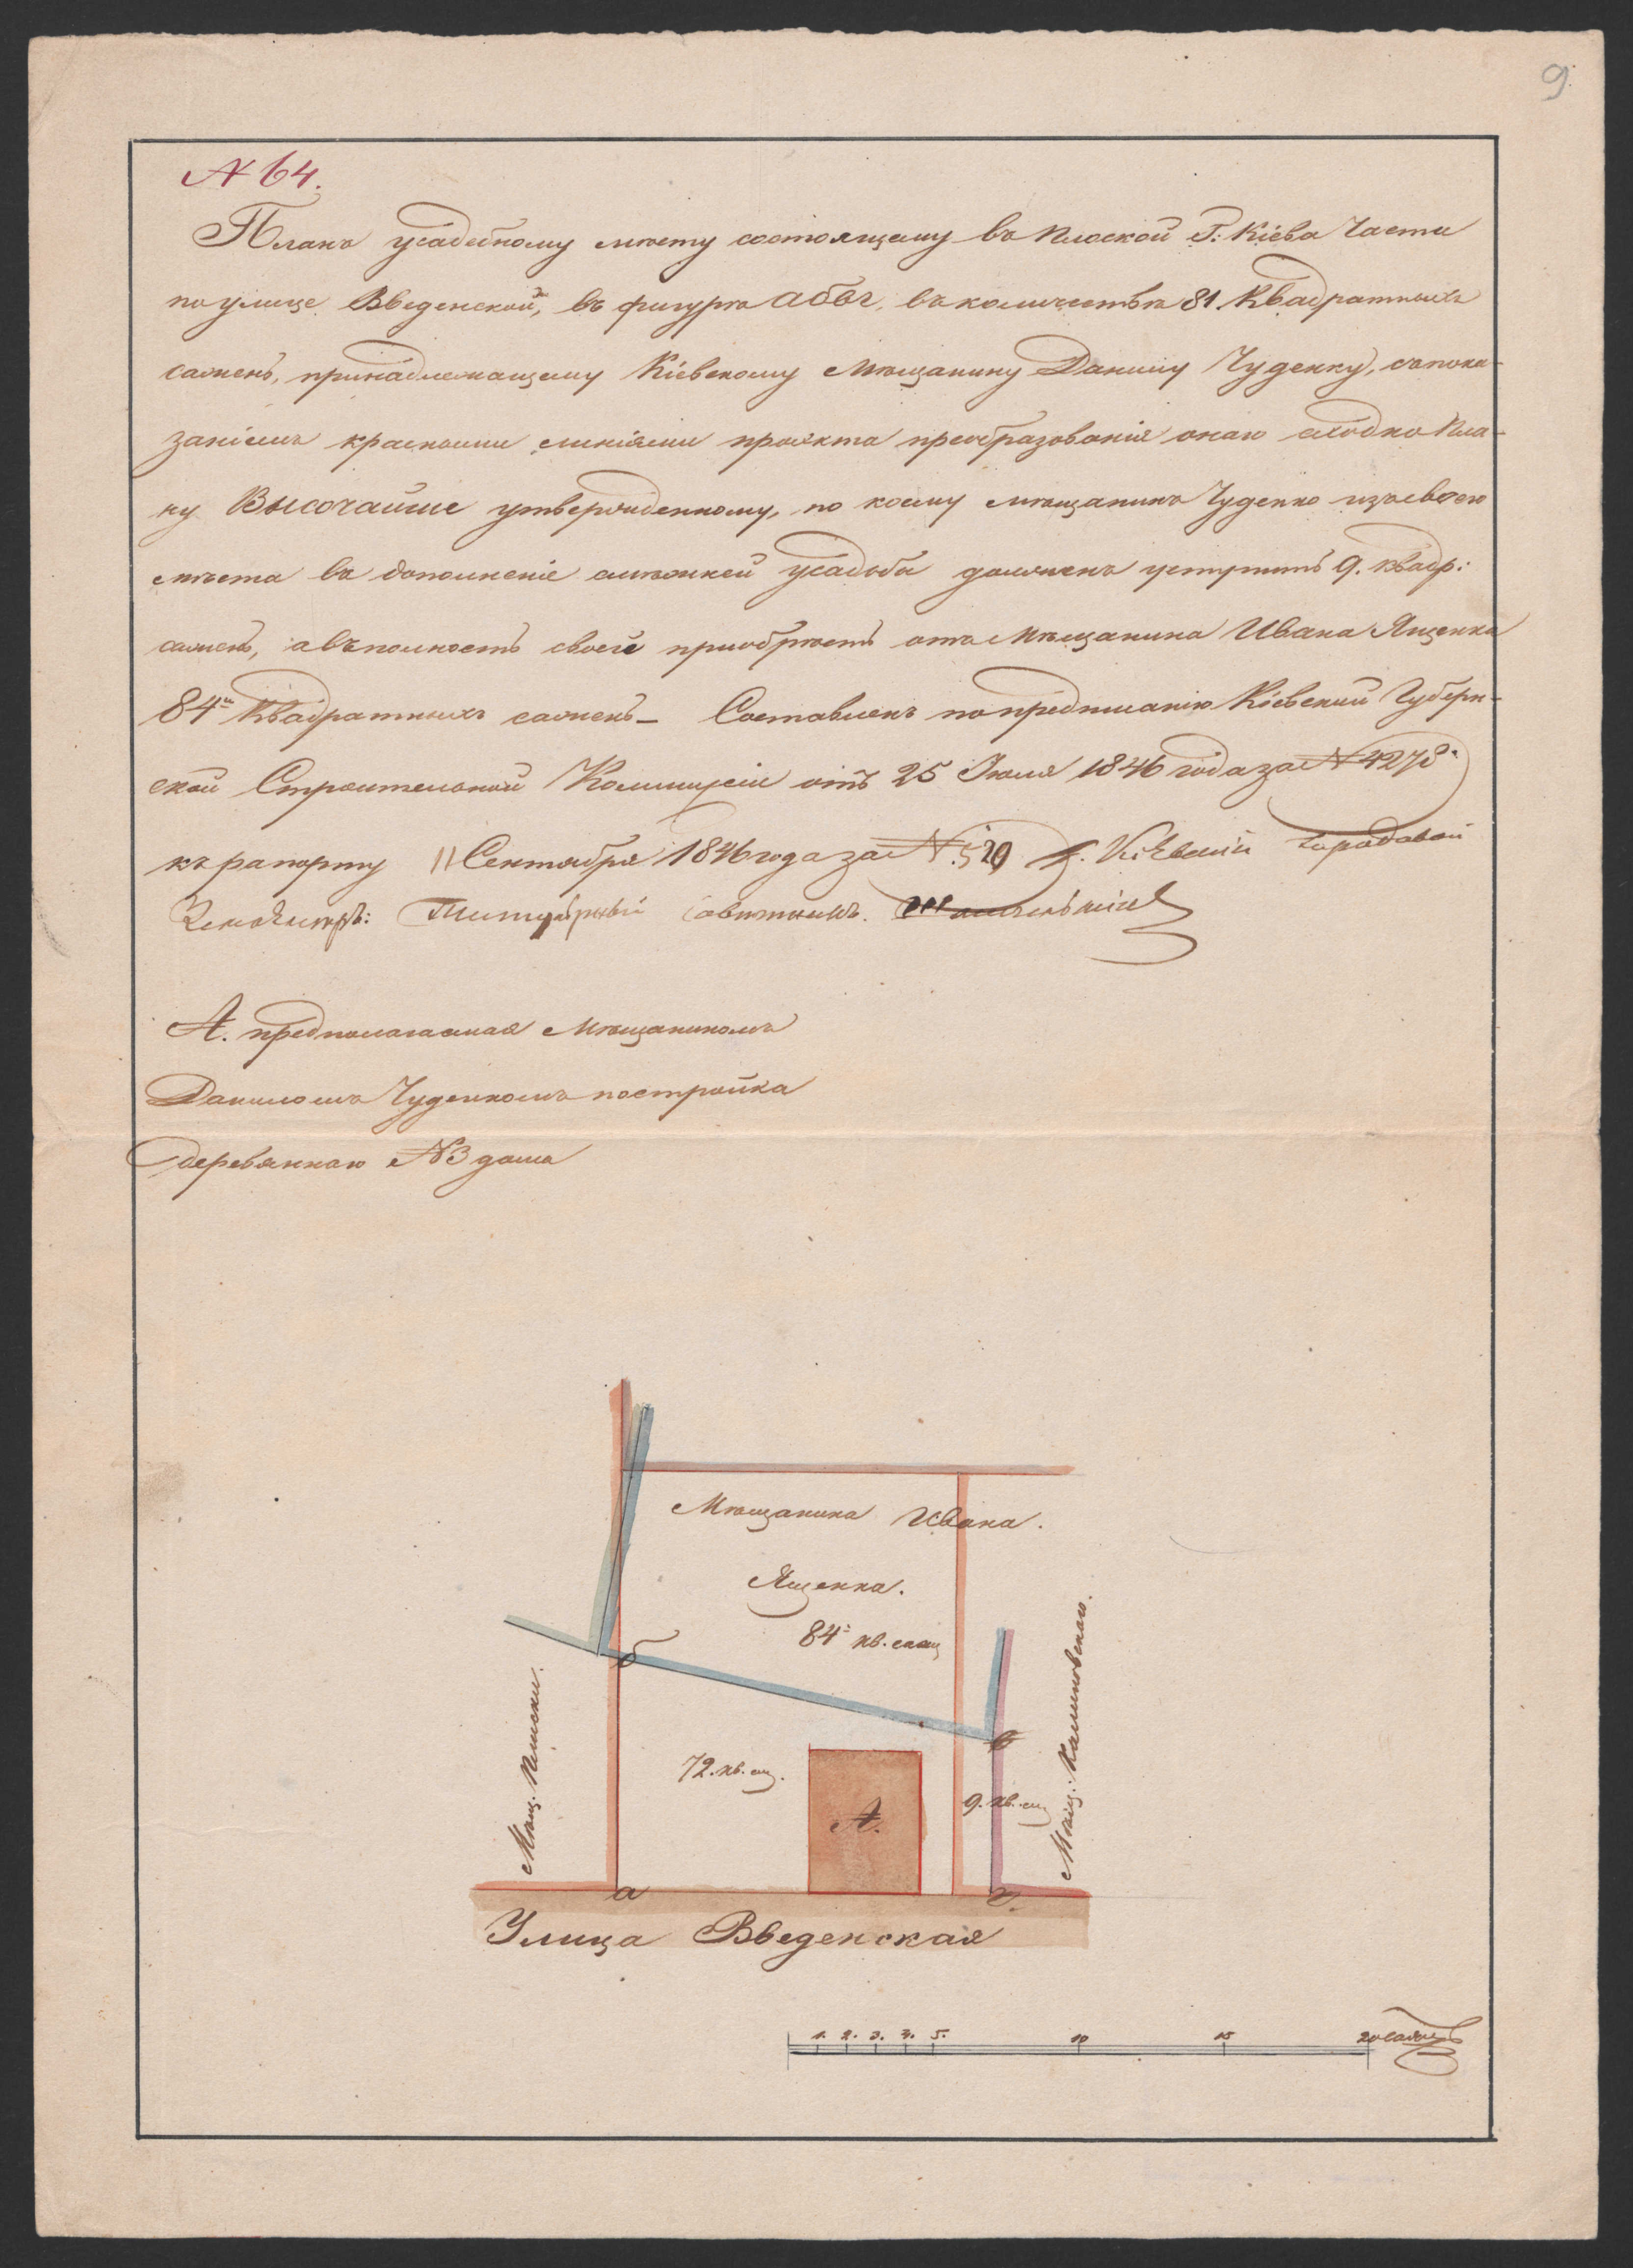 9.
№ 64.
Планъ усадебному мѣсту состоящему въ Плоской Г: Кіева Части
по улице Введенской, въ фигурѣ абвг, въ количествѣ 81. Квадратныхъ
сажень, принадлежащему Кіевскому Мѣщанину Данилу Чуденку, съ пока-
заніемъ красными линіями проэкта преобразованія онаго сходно пла-
ну Высочайше утвержденному, по коему мѣщанинъ Чуденко изъ своего
мѣста въ дополненіе смѣжней усадьбы долженъ уступить 9. квадр:
сажень, а въ полность своей пріобрѣсть отъ Мѣщанина Ивана Ященка
84 Квадратныхъ сажень – Составленъ по предписанію Кіевской Губерн-
ской Строительной Коммиссіи отъ 25 Іюля 1846 года за № 4278
къ рапорту 11 Сентября 1846 года за № 529 Кіевскій Городовой
Землемѣръ: Титулярный Совѣтникъ
А. предполагаемая Мѣщаниномъ
Даниломъ Чуденкомъ постройка
деревяннаго № 3 дома
Мѣщанина Ивана.
Ященка.
84 кв. саж
б
Мѣщ. Калиновскаго.
в
72. кв. саж.
9. кв. саж
А.
а
г.
Улица Введенская
1. 2. 3. 4. 5. 10 15 20 сажень